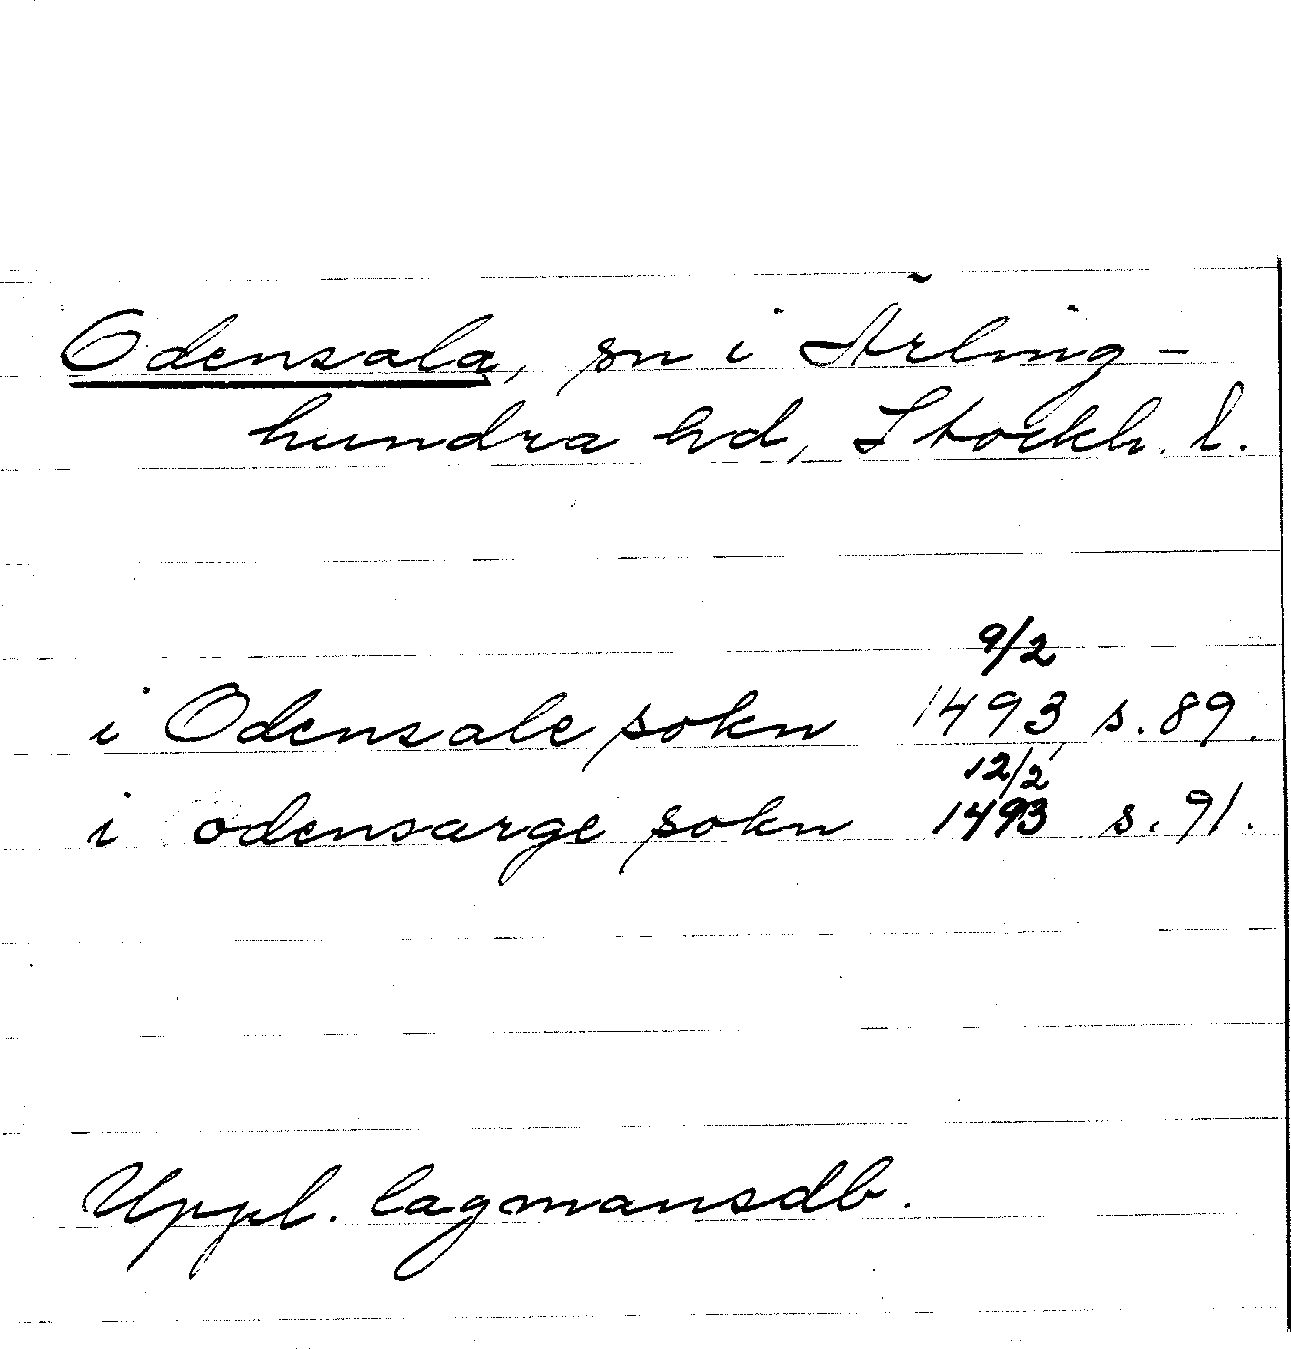 Odensala, sn i Ärling-
hundra hd, Stockh. l.
9/2
i Odensale sokn 1493 s. 89.
12/2
i odensarge sokn 1493 s. 91.
Uppl. lagmansdb.